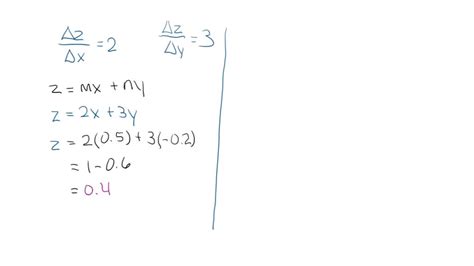 Δz/Δx = 2    Δz/Δy = 3
z = mx + ny
z = 2x + 3y
z = 2(0.5) + 3(-0.2)
= 1 - 0.6
= 0.4